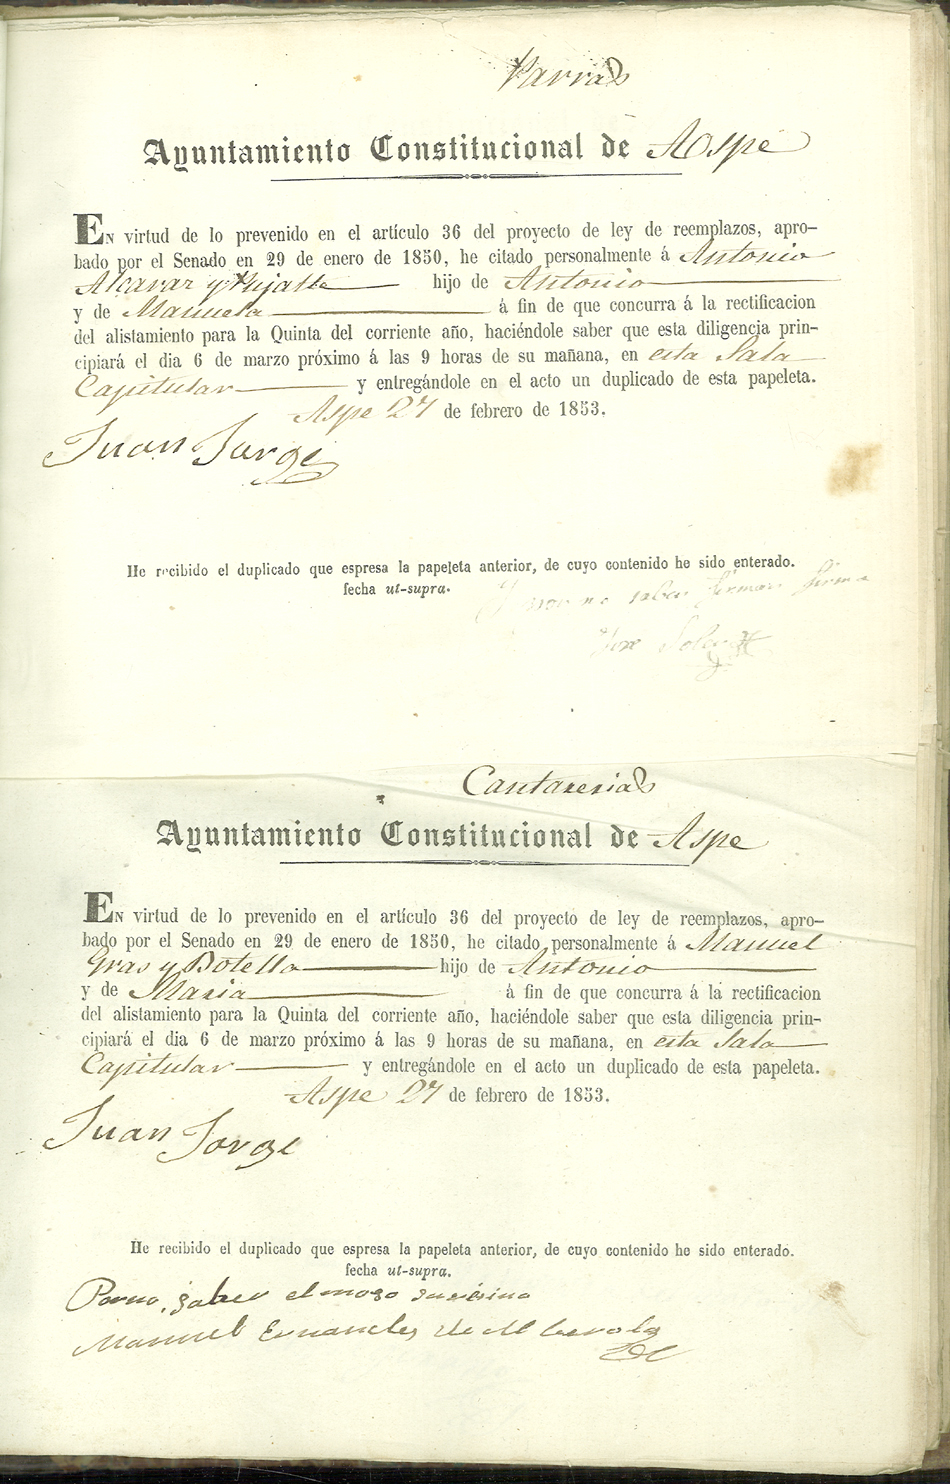 Parras
Ayuntamiento Constitucional de Aspe
EN virtud de lo prevenido en el artículo 36 del proyecto de ley de reemplazos, apro-
bado por el Senado en 29 de enero de 1850, he citado personalmente á Antonio
Alcaraz y hijo de Antonio
y de Manuela á fin de que concurra á la rectificacion
del alistamiento para la Quinta del corriente año, haciéndole saber que esta diligencia prin-
cipiará el dia 6 de marzo próximo á las 9 horas de su mañana, en esta Sala
Capitular y entregándole en el acto un duplicado de esta papeleta.
Aspe 27 de febrero de 1853.
Juan Jorge
He recibido el duplicado que espresa la papeleta anterior, de cuyo contenido he sido enterado.
fecha ut-supra.
no saber firmar firma
Jose Soler
Cantarerias
Ayuntamiento Constitucional de Aspe
EN virtud de lo prevenido en el artículo 36 del proyecto de ley de reemplazos, apro-
bado por el Senado en 29 de enero de 1850, he citado personalmente á Manuel
Gras y Botella hijo de Antonio
y de Maria á fin de que concurra á la rectificacion
del alistamiento para la Quinta del corriente año, haciéndole saber que esta diligencia prin-
cipiará el dia 6 de marzo próximo á las 9 horas de su mañana, en esta Sala
Capitular y entregándole en el acto un duplicado de esta papeleta.
Aspe 27 de febrero de 1853.
Juan Jorge
He recibido el duplicado que espresa la papeleta anterior, de cuyo contenido he sido enterado.
fecha ut-supra.
Porno saber el moso su
Manuel Ernandes de Alberola